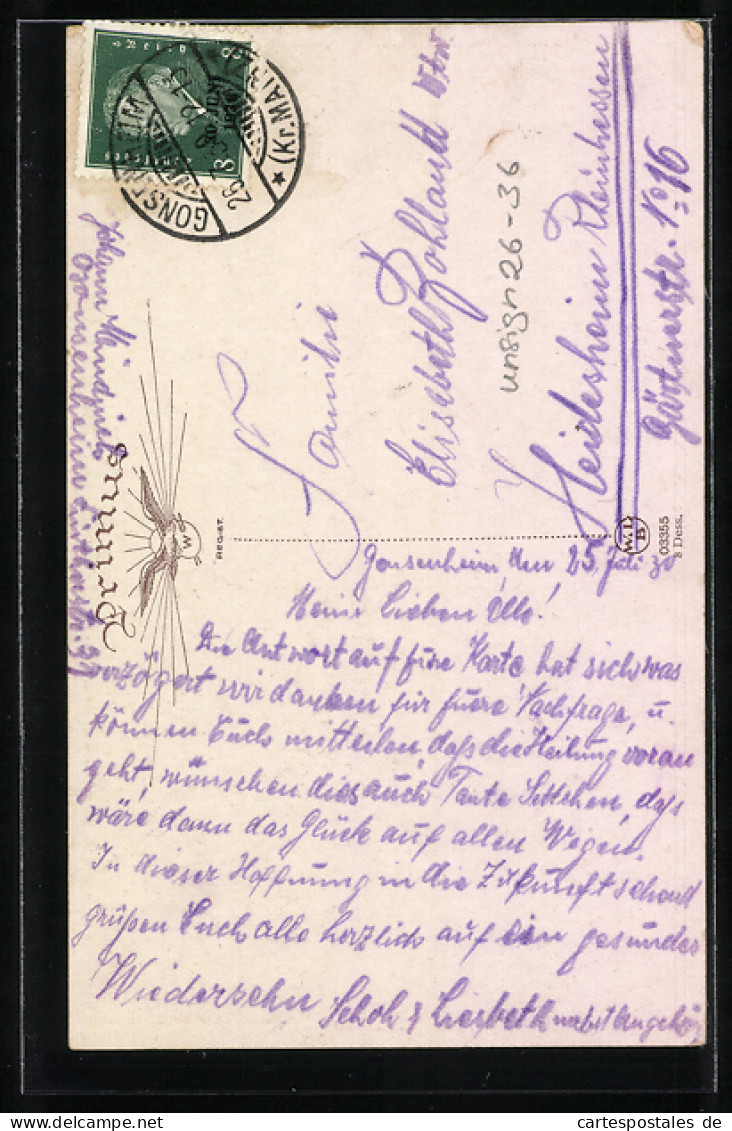 8
GONSENHEIM
(Kr. MAINZ)
Primus
W
REGIST.
Johann
Gonsenheim
Familie
Elisabeth Bohland Wtw
Heidesheim Rheinhessen
Gärtnerstr. No 16
unsign 26-36
W.D
B
03355
8 Dess.
Gonsenheim, den 25. Juli 30
Meine Lieben Alle!
Die Antwort auf Eure Karte hat sich was
verzögert wir danken für Euere Nachfrage, u.
können Euch mitteilen, daß die Heilung voran
geht, wünschen dies auch Tante Settchen, daß
wäre dann das Glück auf allen Wegen.
In dieser Hoffnung in die Zukunft schend
grüßen Euch alle herzlich auf ein gesundes
Wiedersehn
Liesbeth nebst Angehör
www.cartespostales.de